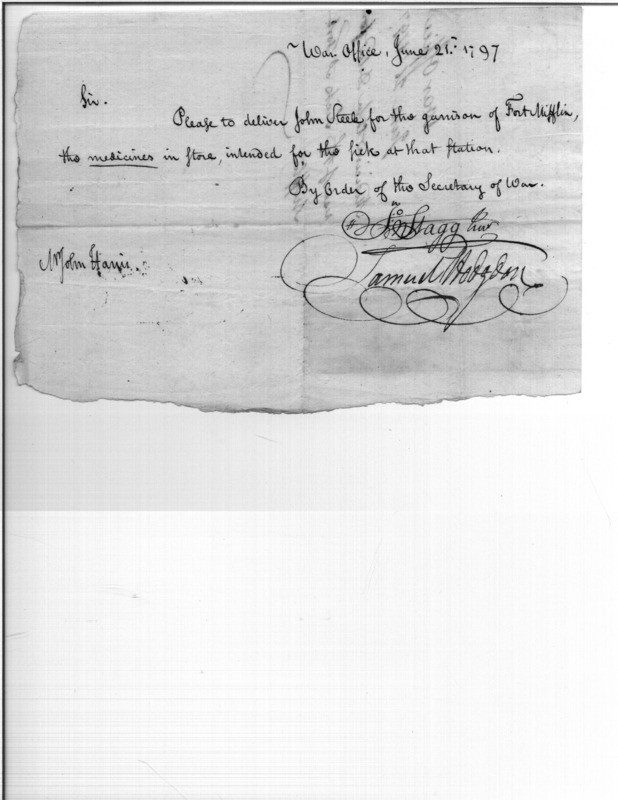 War Office, June 21. 1797
Sir.
Please to deliver John Steel, for the garrison of Fort Mifflin,
the medicines in store, intended for the sick at that station.
By Order of the Secretary of War.
Jno Stagg Junr
Mr John Harris.
Samuel Hodgdon